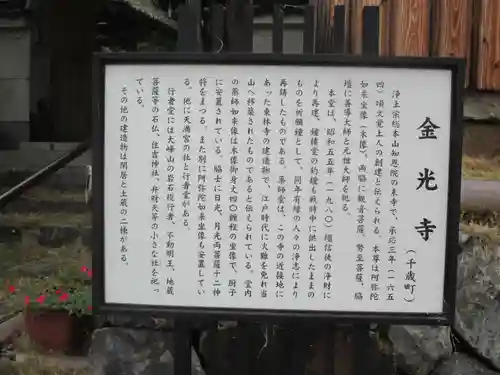 金光寺
(千歳町)
浄土宗総本山知恩院の末寺で、承応三年(一六五
四)頃文誉上人の創建と伝えられる。本尊は阿弥陀
如来坐像(木像)、両脇に観音菩薩、勢至菩薩、脇
壇に善導大師と元祖大師を祀る。
本堂は、昭和五五年(一九八〇)檀信徒の浄財に
より再建、鐘楼堂の釣鐘も戦時中に供出したままの
ものを祈願鐘として、同年有縁の人々の浄志により
再鋳したものである。薬師堂は、この寺の近接地に
あった東林寺の建造物で、江戸時代に火難を免れ当
山へ移築されたものであると伝えられている。堂内
の薬師如来像は木像御身丈四〇糎程の坐像で、厨子
に安置されている。脇士に日光、月光両菩薩十二神
将をまつる。また別に阿弥陀如来坐像も安置してい
る。他に天満宮の社と行者堂がある。
行者堂には大峰山の岩石役行者、不動明王、地蔵
菩薩等の石仏、住吉神社、弁財天等の小さな社を祀っ
ている。
その他の建造物は閑居と土蔵の二棟がある。